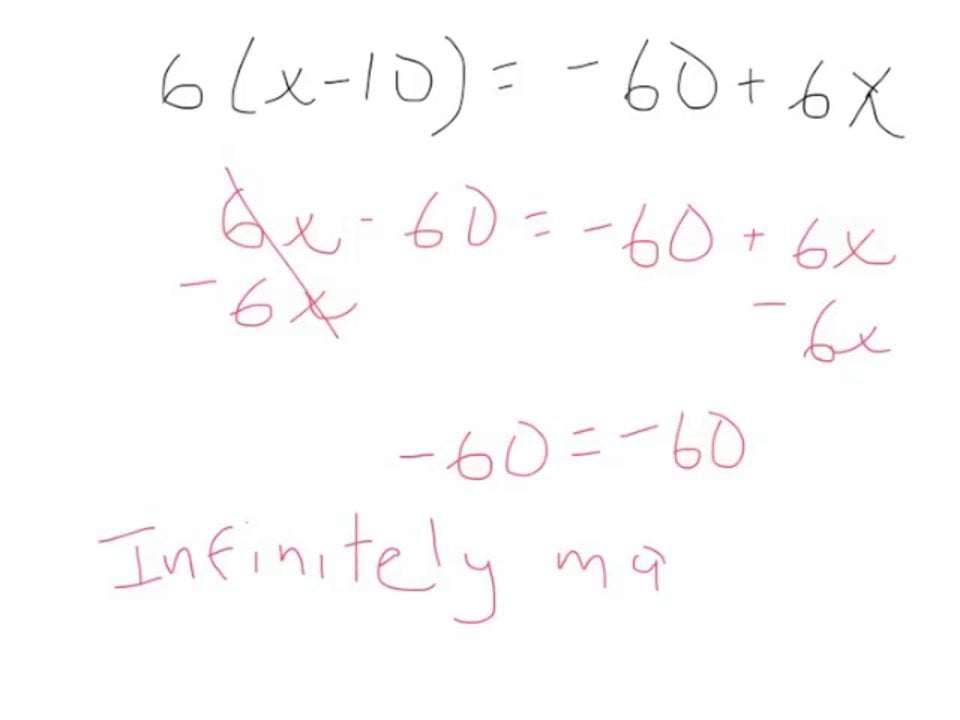 6(x-10) = -60 + 6x
6x - 60 = -60 + 6x
-6x -6x
-60 = -60
Infinitely ma